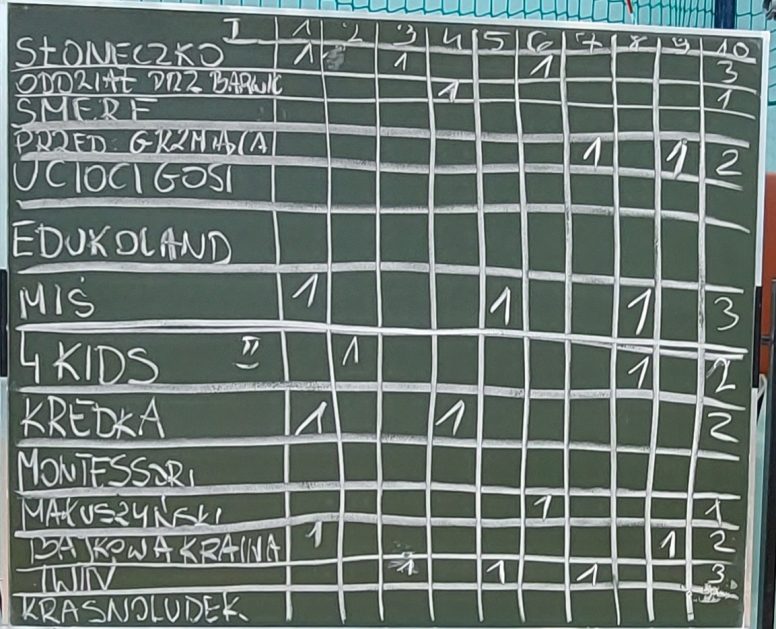 I 1 2 3 4 5 6 7 8 9 10
SŁONECZKO 1 1 1 3
ODDZIAŁ PRZ BARWIC 1 1
SMERF
PRZED. GRZMIĄCA 1 1 2
U CIOCI GOSI
EDUKOLAND
MIŚ 1 1 1 3
4 KIDS 1 1 2
KREDKA 1 1 2
MONTESSORI
MAKUSZYŃSKI 1 1
BAJKOWA KRAINA 1 1 2
TWIN 1 1 1 3
KRASNOLUDEK